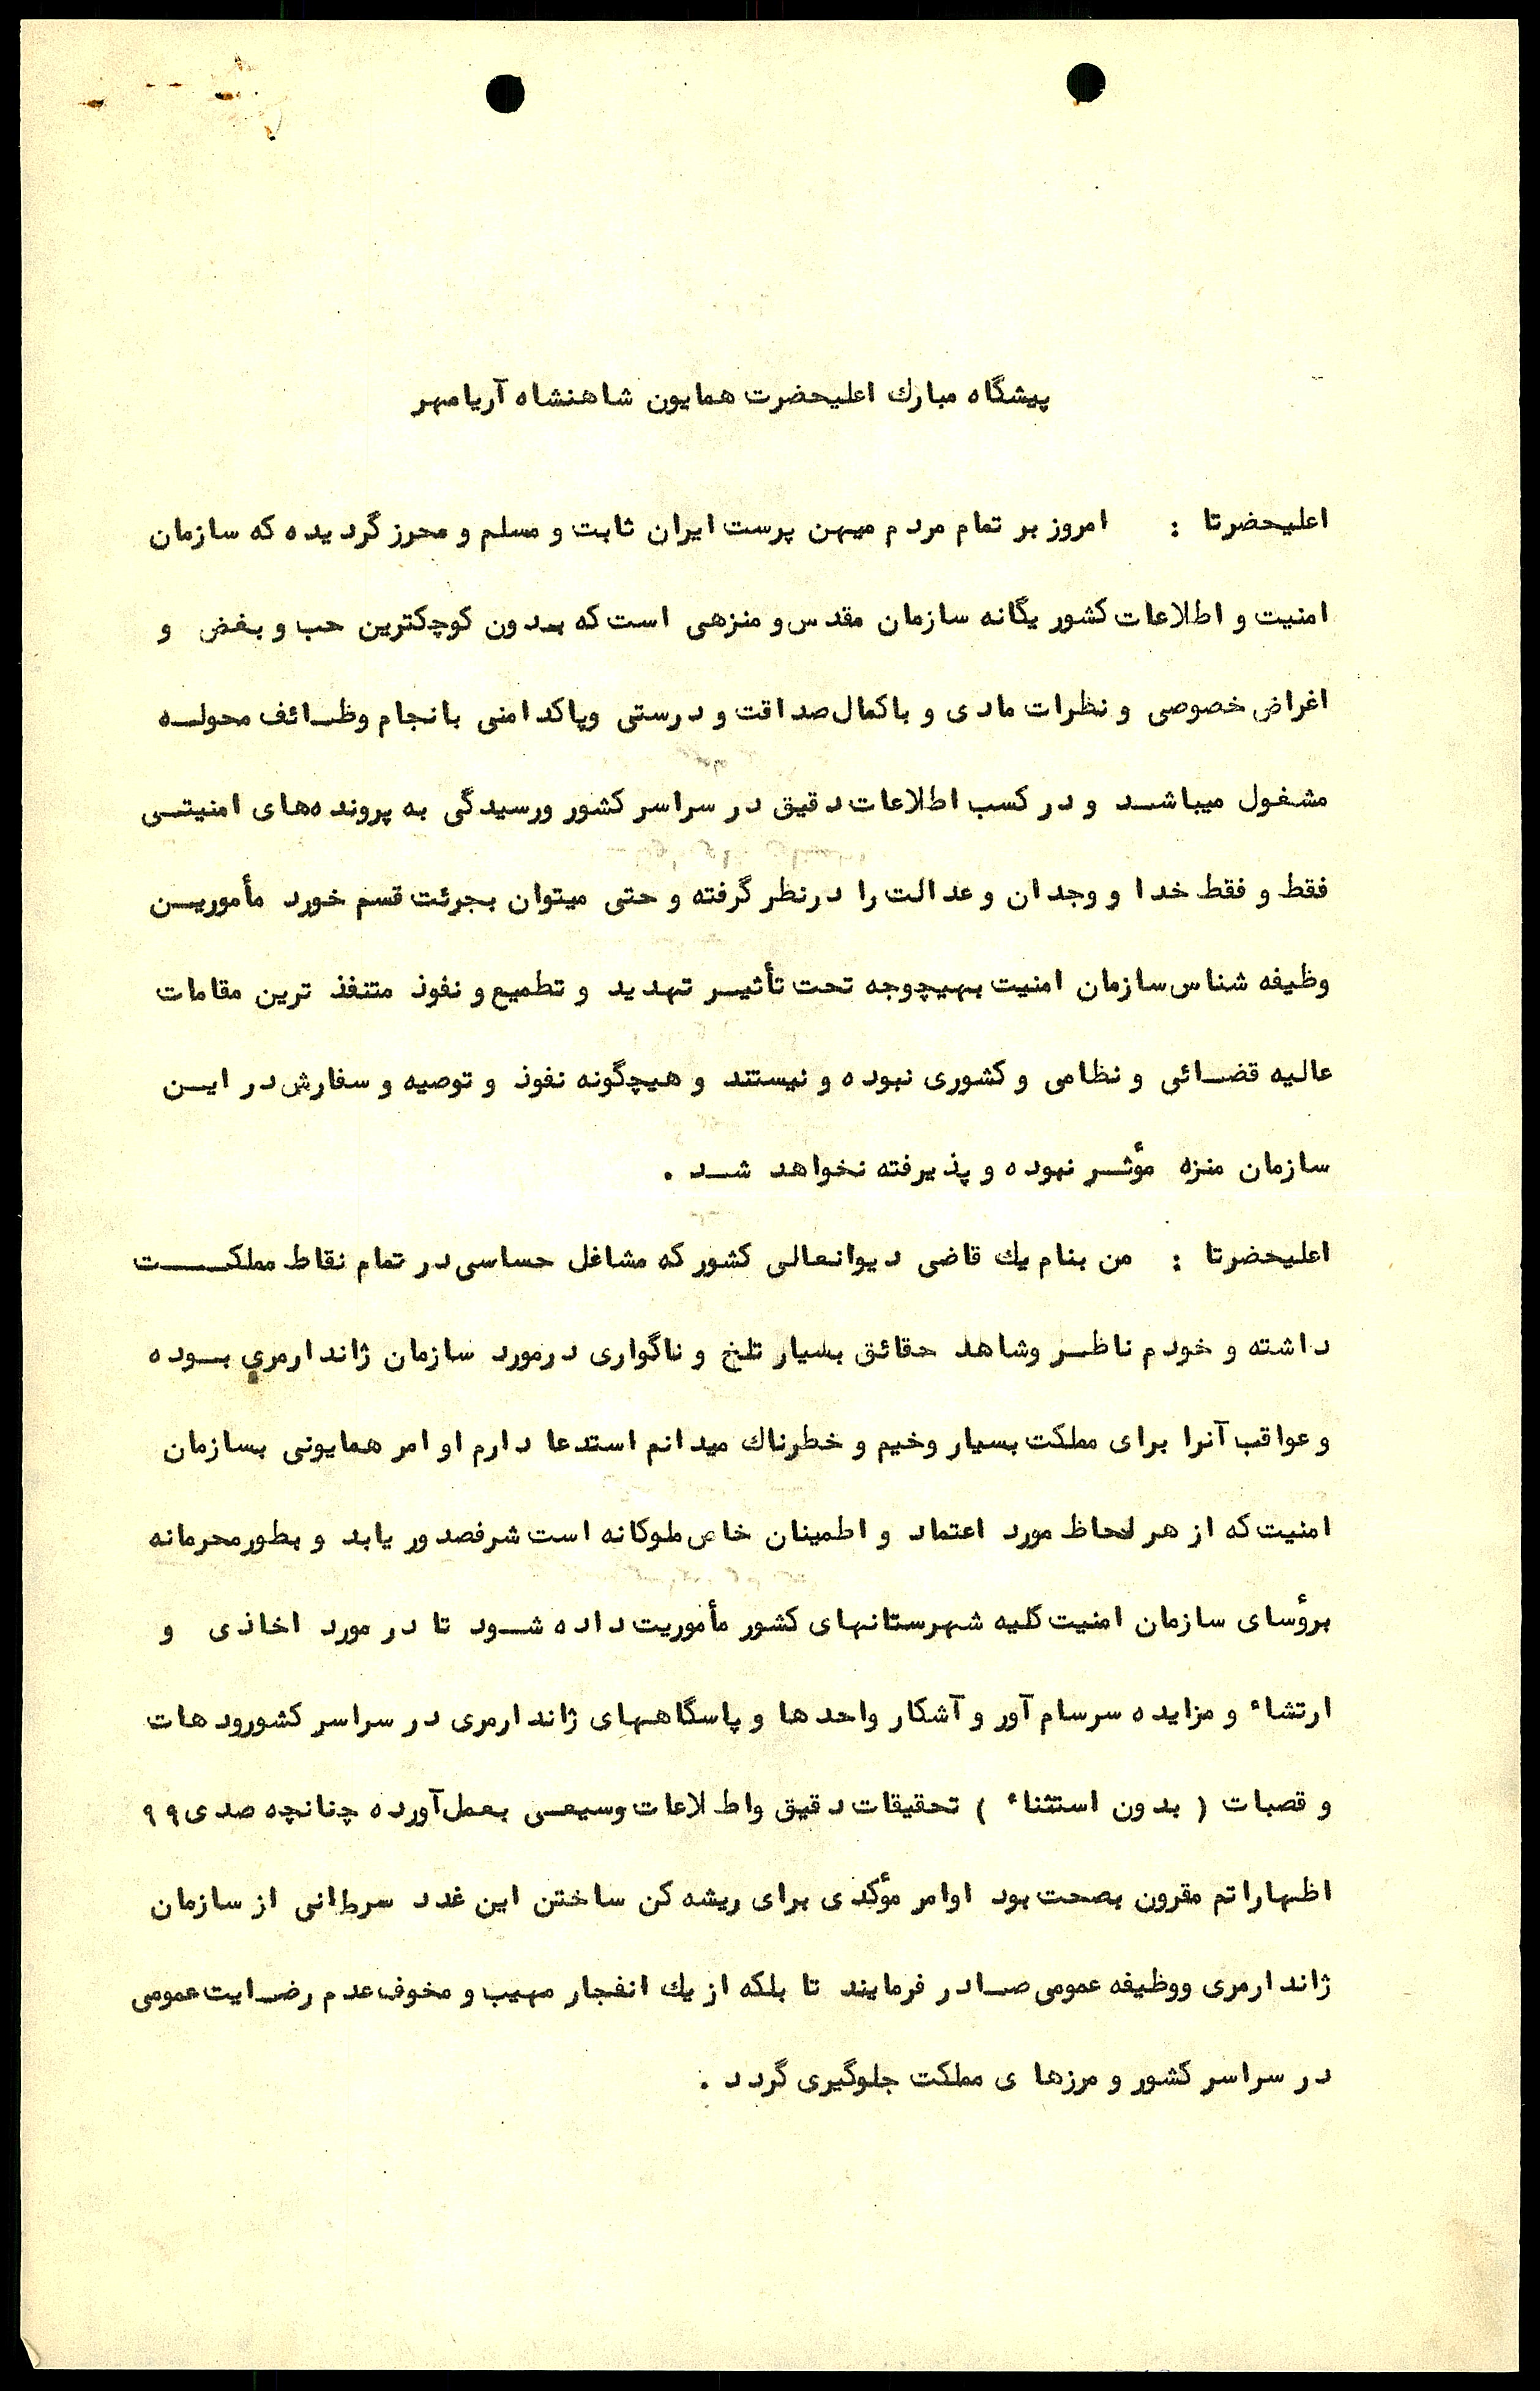 پیشگاه مبارك اعلیحضرت همایون شاهنشاه آریامهر
اعلیحضرتا : امروز بر تمام مردم میهن پرست ایران ثابت و مسلم و محرز گردیده که سازمان
امنیت و اطلاعات کشور یگانه سازمان مقدس و منزهی است که بدون کوچکترین حب و بغض و
اغراض خصوصی و نظرات مادی و باکمال صداقت و درستی وپاکدامنی بانجام وظائف محوله
مشغول میباشد و در کسب اطلاعات دقیق در سراسر کشور ورسیدگی به پرونده‌های امنیتی
فقط و فقط خدا و وجدان و عدالت را درنظر گرفته و حتی میتوان بجرئت قسم خورد مأمورین
وظیفه شناس سازمان امنیت بهیچوجه تحت تأثیر تهدید و تطمیع و نفوذ متنفذ ترین مقامات
عالیه قضائی و نظامی و کشوری نبوده و نیستند و هیچگونه نفوذ و توصیه و سفارش در این
سازمان منزه مؤثر نبوده و پذیرفته نخواهد شد .
اعلیحضرتا : من بنام یك قاضی دیوانعالی کشور که مشاغل حساسی در تمام نقاط مملکت
داشته و خودم ناظر وشاهد حقائق بسیار تلخ و ناگواری درمورد سازمان ژاندارمری بوده
و عواقب آنرا برای مملکت بسیار وخیم و خطرناك میدانم استدعا دارم اوامر همایونی بسازمان
امنیت که از هر لحاظ مورد اعتماد و اطمینان خاص ملوکانه است شرفصدور یابد و بطور محرمانه
برؤسای سازمان امنیت کلیه شهرستانهای کشور مأموریت داده شود تا در مورد اخاذی و
ارتشاء و مزایده سرسام آور و آشکار واحدها و پاسگاههای ژاندارمری در سراسر کشورودهات
و قصبات ( بدون استثناء ) تحقیقات دقیق واطلاعات وسیعی بعمل‌آورده چنانچه صدی ۹۹
اظهاراتم مقرون بصحت بود اوامر مؤکدی برای ریشه کن ساختن این غدد سرطانی از سازمان
ژاندارمری ووظیفه عمومی صادر فرمایند تا بلکه از یك انفجار مهیب و مخوف عدم رضایت عمومی
در سراسر کشور و مرزهای مملکت جلوگیری گردد .